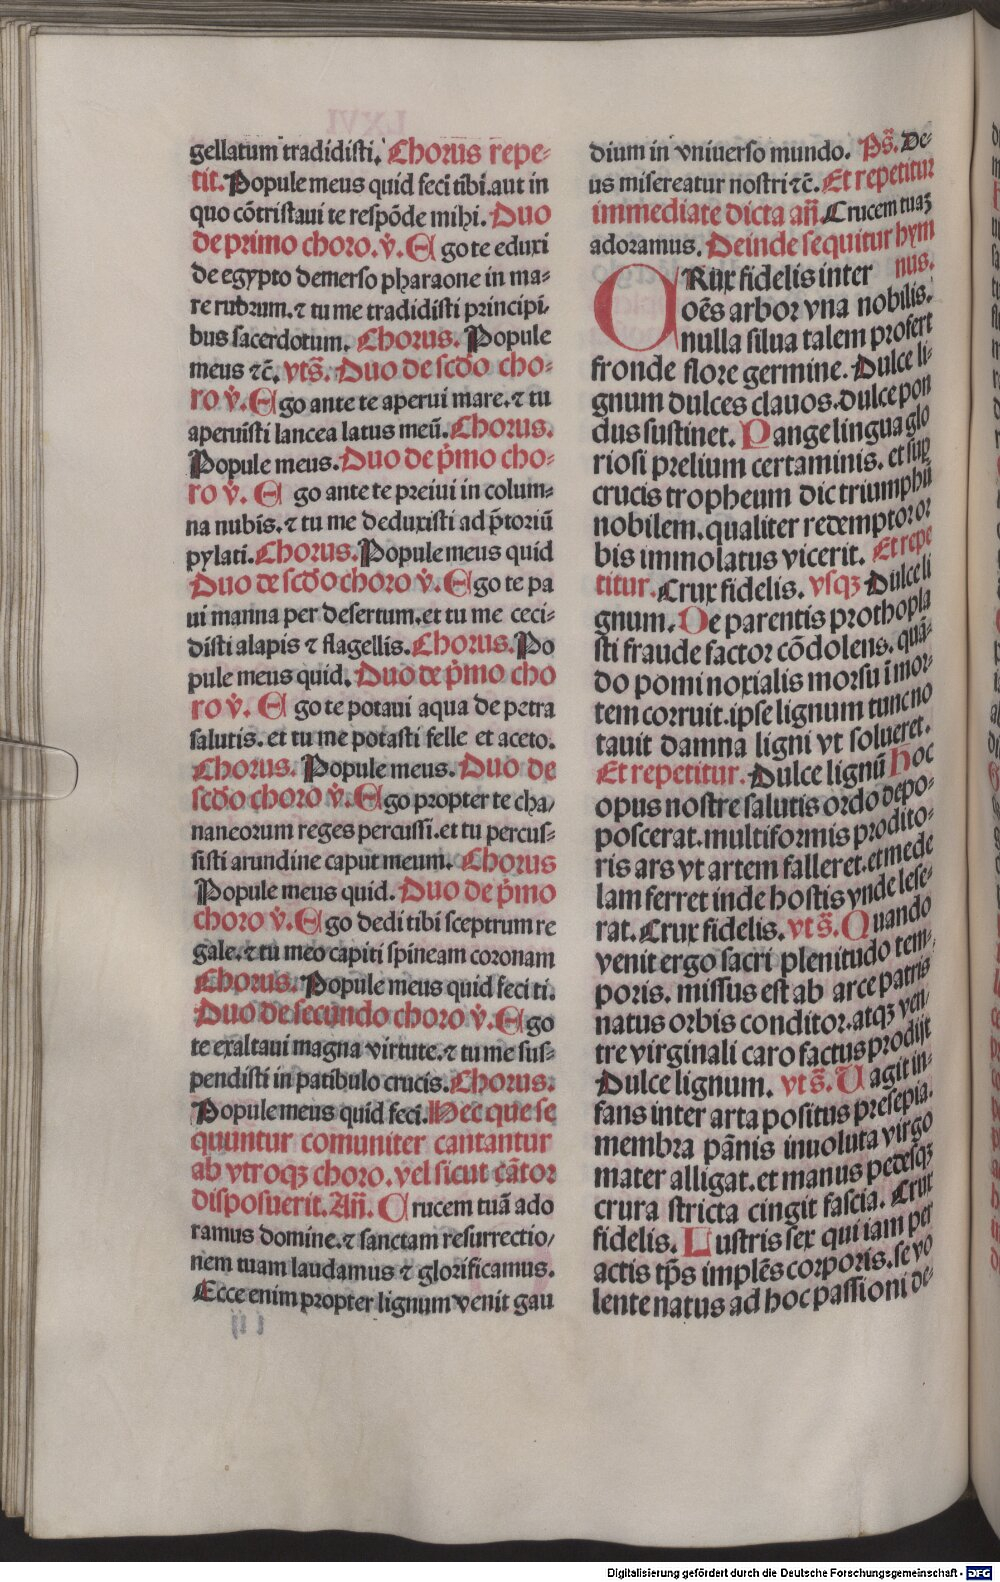 gellatum tradidisti. Chorus repe-
tit. Popule meus quid feci tibi. aut in
quo cõtristaui te respõde mihi. Duo
de primo choro. v̉. Ego te eduxi
de egypto demerso pharaone in ma-
re rubrum. ⁊ tu me tradidisti principi-
bus sacerdotum. Chorus. Popule
meus ⁊c̃. vts̃. Duo de scd̃o cho-
ro v̉. Ego ante te aperui mare. ⁊ tu
aperuisti lancea latus meũ. Chorus.
Popule meus. Duo de p̉mo cho-
ro v̉. Ego ante te preiui in colum-
na nubis. ⁊ tu me deduxisti ad p̃toriũ
pylati. Chorus. Popule meus quid
Duo de scd̃o choro v̉. Ego te pa
ui manna per desertum. et tu me ceci-
disti alapis ⁊ flagellis. Chorus. Po
pule meus quid. Duo de p̉mo cho
ro v̉. Ego te potaui aqua de petra
salutis. et tu me potasti felle et aceto.
Chorus. Popule meus. Duo de
scd̃o choro v̉. Ego propter te cha/
naneorum reges percussi. et tu percus-
sisti arundine caput meum. Chorus
Popule meus quid. Duo de p̉mo
choro v̉. Ego dedi tibi sceptrum re
gale. ⁊ tu meo capiti spineam coronam
Chorus. Popule meus quid feci ti.
Duo de secundo choro v̉. Ego
te exaltaui magna virtute. ⁊ tu me sus-
pendisti in patibulo crucis. Chorus.
Popule meus quid feci. Hec que se
quuntur comuniter cantantur
ab vtroqꝫ choro. vel sicut cãtor
disposuerit. Añ. Crucem tuã ado
ramus domine. ⁊ sanctam resurrectio/
nem tuam laudamus ⁊ glorificamus.
Ecce enim propter lignum venit gau
dium in vniuerso mundo. Ps̃. De-
us misereatur nostri ⁊c̃. Et repetitur
immediate dicta añ Crucem tuaꝫ
adoramus. Deinde sequitur hym
nus.
CRux fidelis inter
oẽs arbor vna nobilis.
nulla silua talem profert
fronde flore germine. Dulce li-
gnum dulces clauos. dulce pon
dus sustinet. Pange lingua glo
riosi prelium certaminis. et suꝑ
crucis tropheum dic triumphũ
nobilem. qualiter redemptor or
bis immolatus vicerit. Et repe
titur. Crux fidelis. vsqꝫ Dulce li
gnum. De parentis prothopla
sti fraude factor cõdolens. quã-
do pomi noxialis morsu ĩ mor-
tem corruit. ipse lignum tunc no
tauit damna ligni vt solueret.
Et repetitur. Dulce lignũ Hoc
opus nostre salutis ordo depo-
poscerat. multiformis prodito-
ris ars vt artem falleret. et mede
lam ferret inde hostis vnde lese-
rat. Crux fidelis. vts̃. Quando
venit ergo sacri plenitudo tem-
poris. missus est ab arce patris
natus orbis conditor. atqꝫ ven/
tre virginali caro factus prodijt
Dulce lignum. vts̃. Uagit in-
fans inter arta positus presepia.
membra pãnis inuoluta virgo
mater alligat. et manus pedesqꝫ
crura stricta cingit fascia. Crux
fidelis. Lustris sex qui iam per
actis tp̃s implẽs corporis. se vo
lente natus ad hoc passioni de-
Digitalisierung gefördert durch die Deutsche Forschungsgemeinschaft - DFG